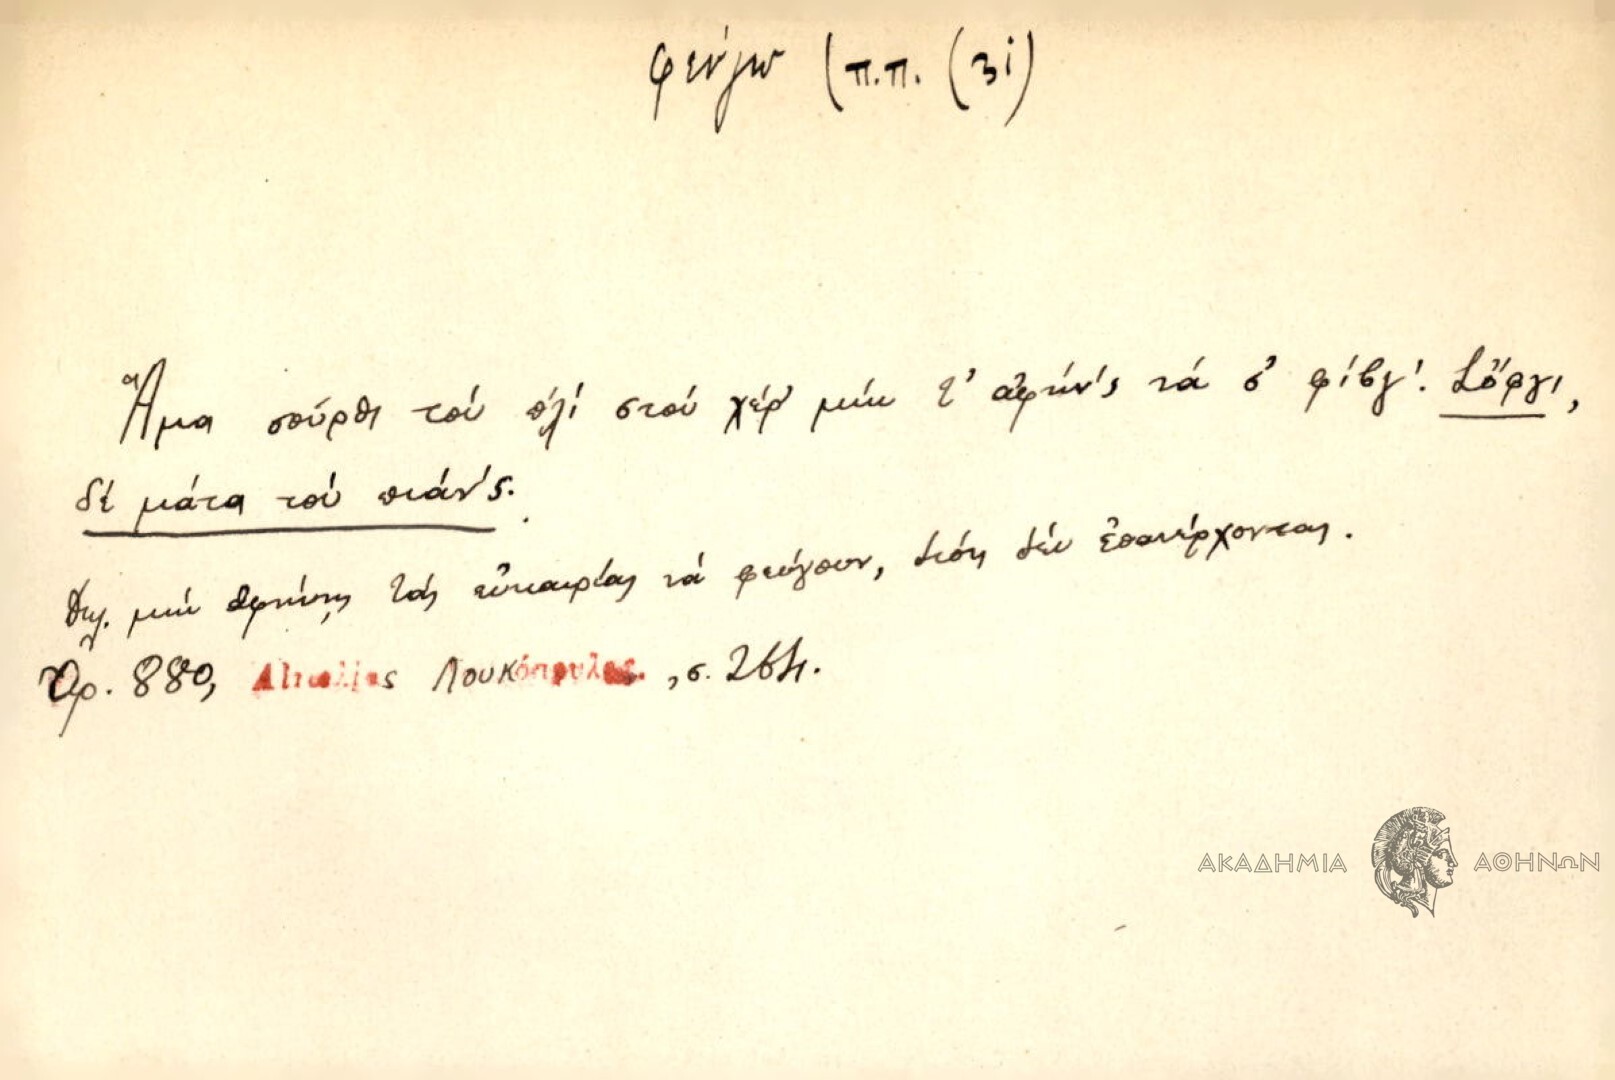 φεύγω (π.π. (3i)
Ἅμα σούρθι τοὺ π'λὶ στοὺ χέρ' μὴν τ' ἀφήν'ς νά σ' φίβγ'. Σὄφγι,
δὲ μάτα τοὺ πιάν'ς.
δηλ. μὴν ἀφήνῃς τὰς εὐκαιρίας νά φεύγουν, διότι δὲν ἐπανέρχονται.
Ἀρ. 880, Αἰτωλίας Λουκόπουλος, σ. 264.
ΑΚΑΔΗΜΙΑ ΑΘΗΝΩΝ